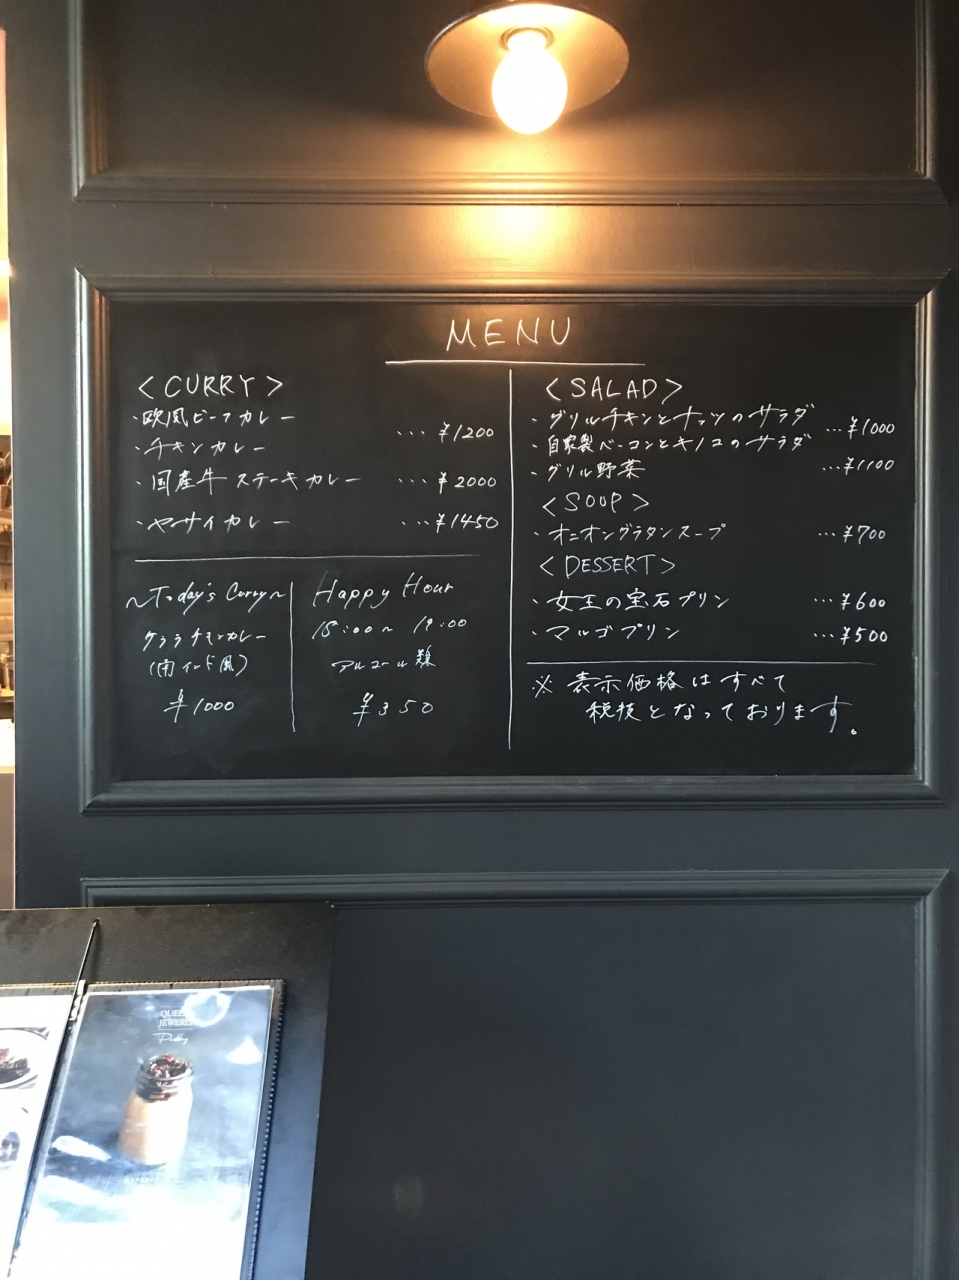 MENU
<CURRY>
・欧風ビーフカレー
・チキンカレー
... ¥1200
・国産牛ステーキカレー ... ¥2000
・ヤサイカレー ... ¥1450
~Today's Curry~
ケララチキンカレー
(南インド風)
¥1000
Happy Hour
15:00~19:00
アルコール類
¥350
<SALAD>
・グリルチキンとナッツのサラダ
・自家製ベーコンとキノコのサラダ
... ¥1000
・グリル野菜 ... ¥1100
<SOUP>
・オニオングラタンスープ ... ¥700
<DESSERT>
・女王の宝石プリン ... ¥600
・マルゴプリン ... ¥500
※ 表示価格はすべて
税抜となっております。
JEWERLY
Pudding